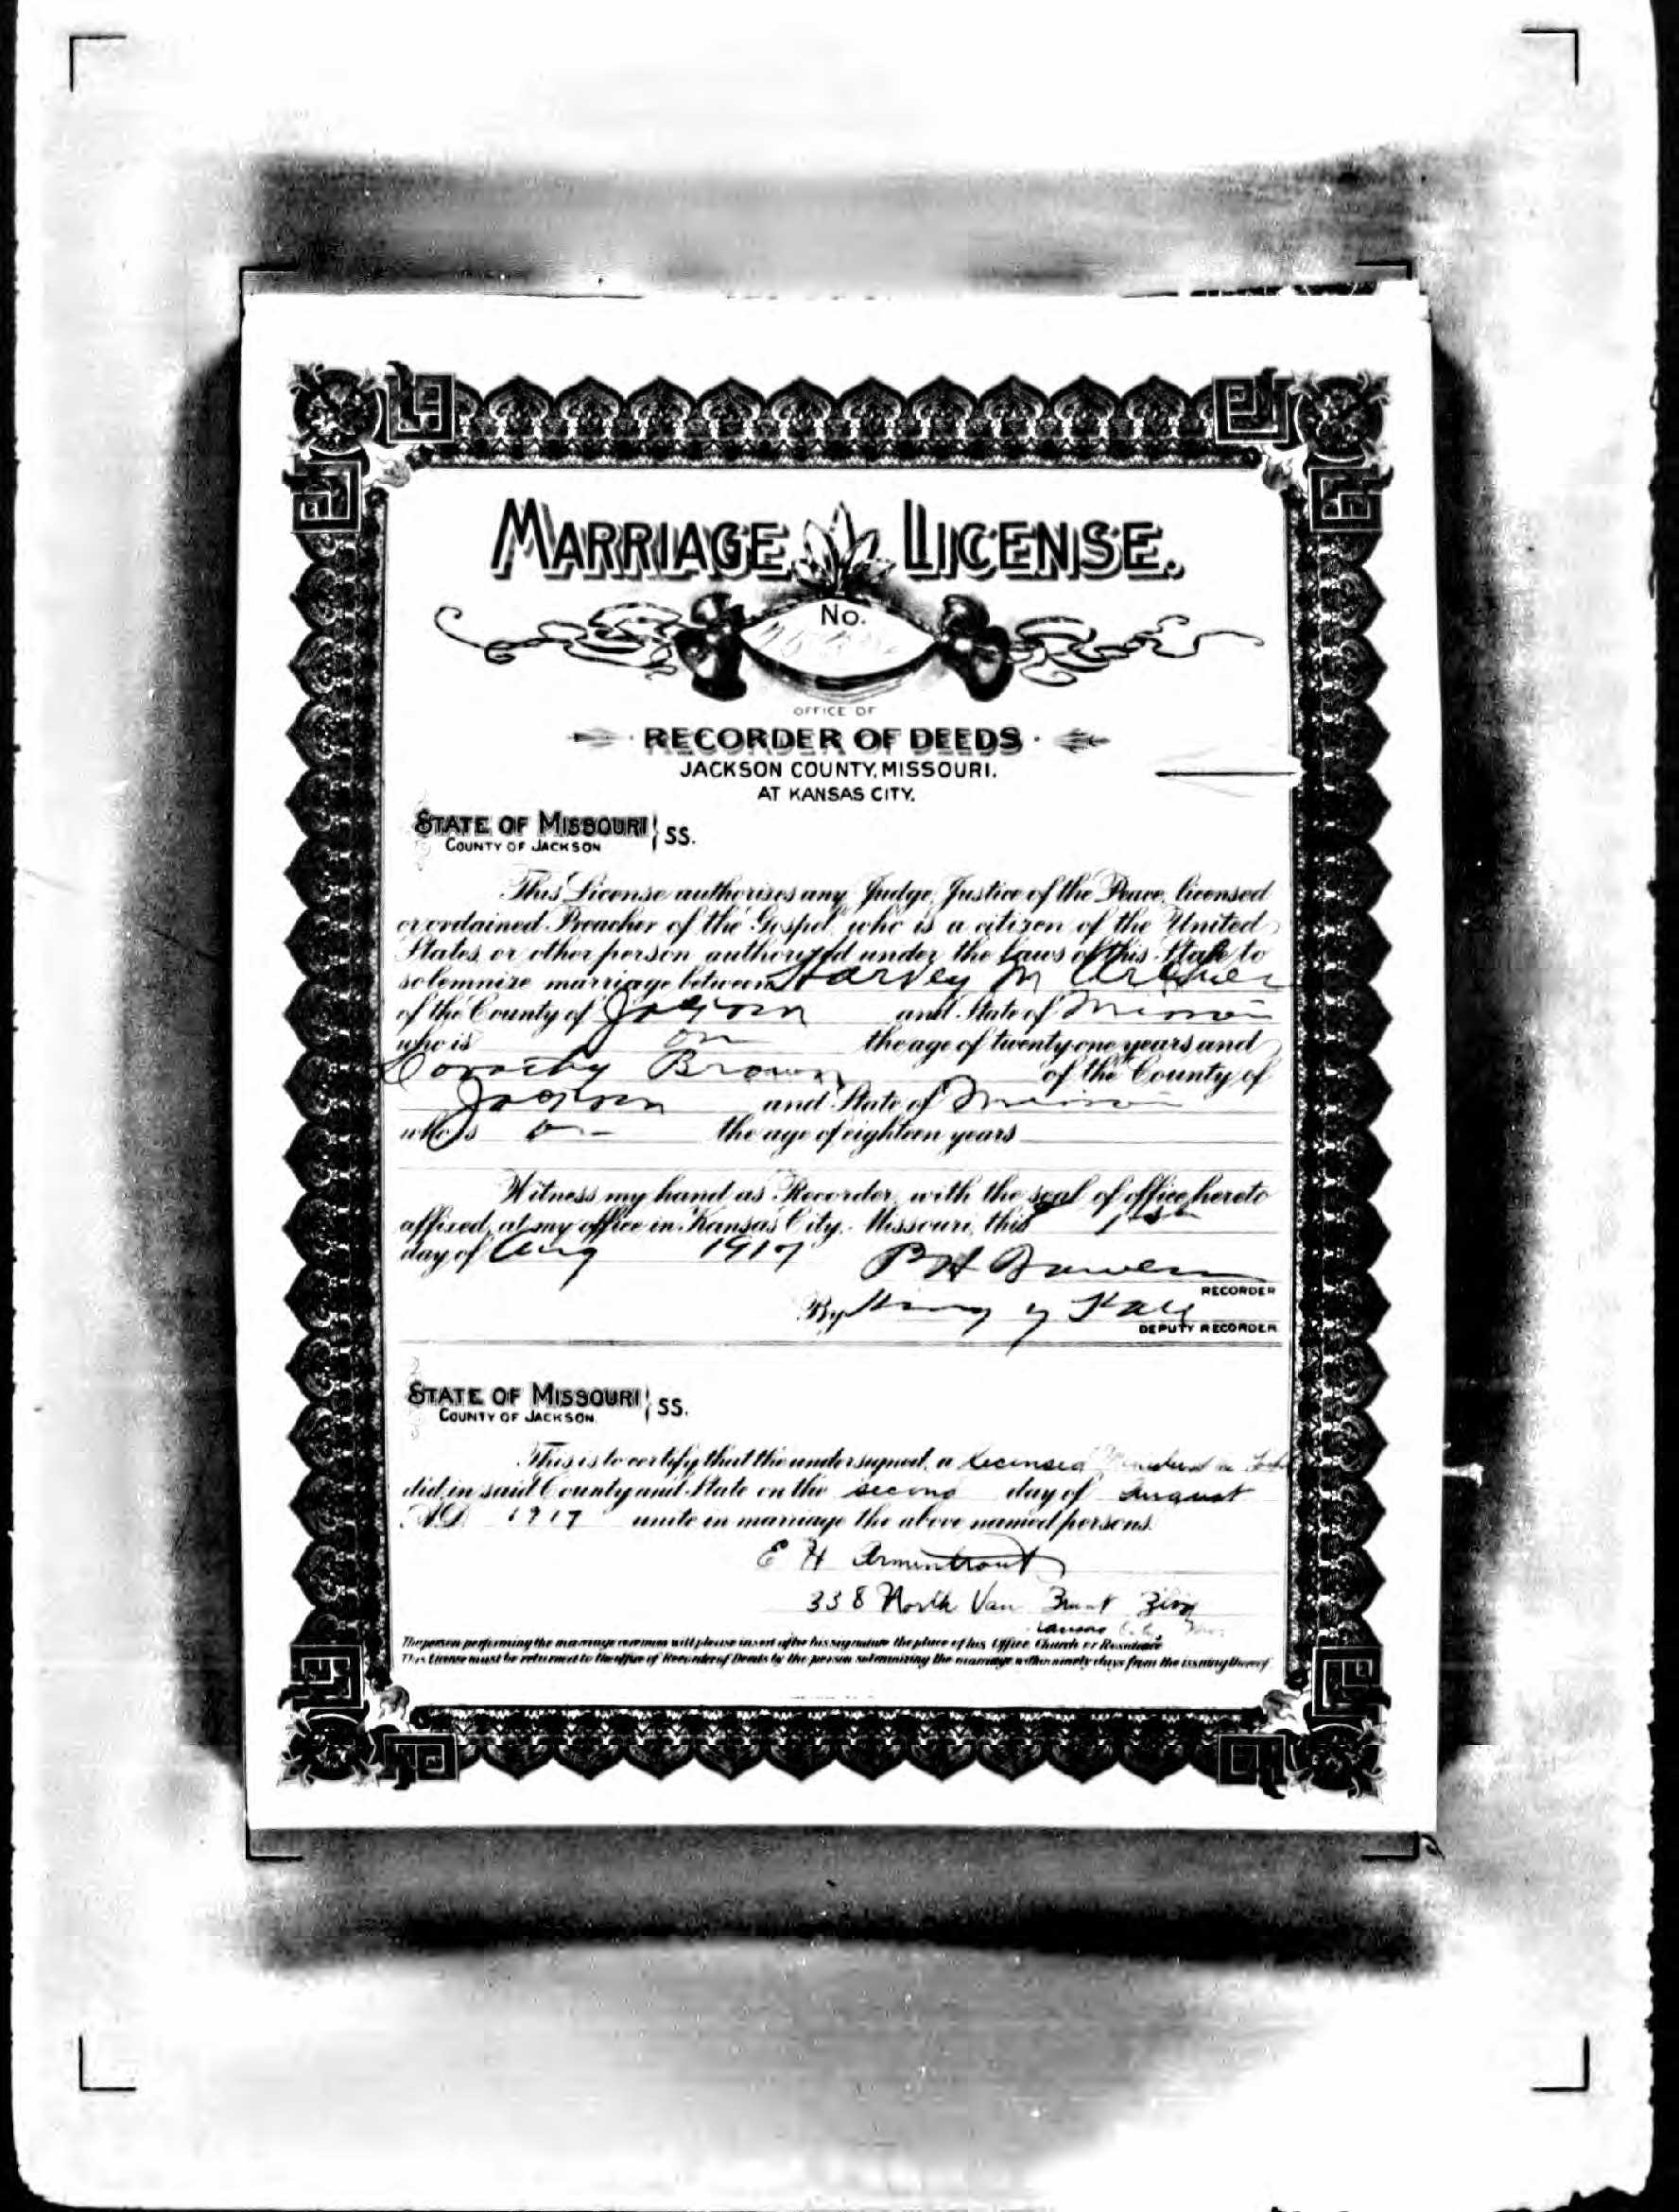 MARRIAGE LICENSE.
No.
OFFICE OF
RECORDER OF DEEDS
JACKSON COUNTY, MISSOURI.
AT KANSAS CITY.
STATE OF MISSOURI } SS.
COUNTY OF JACKSON
This License authorizes any Judge, Justice of the Peace, licensed
or ordained Preacher of the Gospel, who is a citizen of the United
States, or other person authorized under the laws of this State to
solemnize marriage between Harvey M
of the County of Jackson and State of Missouri
who is the age of twenty-one years and
Dorothy Brown of the County of
Jackson and State of Missouri
who is the age of eighteen years
Witness my hand as Recorder, with the seal of office hereto
affixed, at my office in Kansas City, Missouri, this 1st
day of Aug 1917
RECORDER
By
DEPUTY RECORDER
STATE OF MISSOURI } SS.
COUNTY OF JACKSON
This is to certify that the undersigned, a Licensed
did, in said County and State on the second day of August
A.D. 1917 unite in marriage the above named persons.
E H Armentrout
338 North Van
Kansas City Mo.
The person performing the marriage ceremony will please insert after his signature the place of his Office, Church or Residence
This License must be returned to the office of Recorder of Deeds by the person solemnizing the marriage within ninety days from the issuing thereof